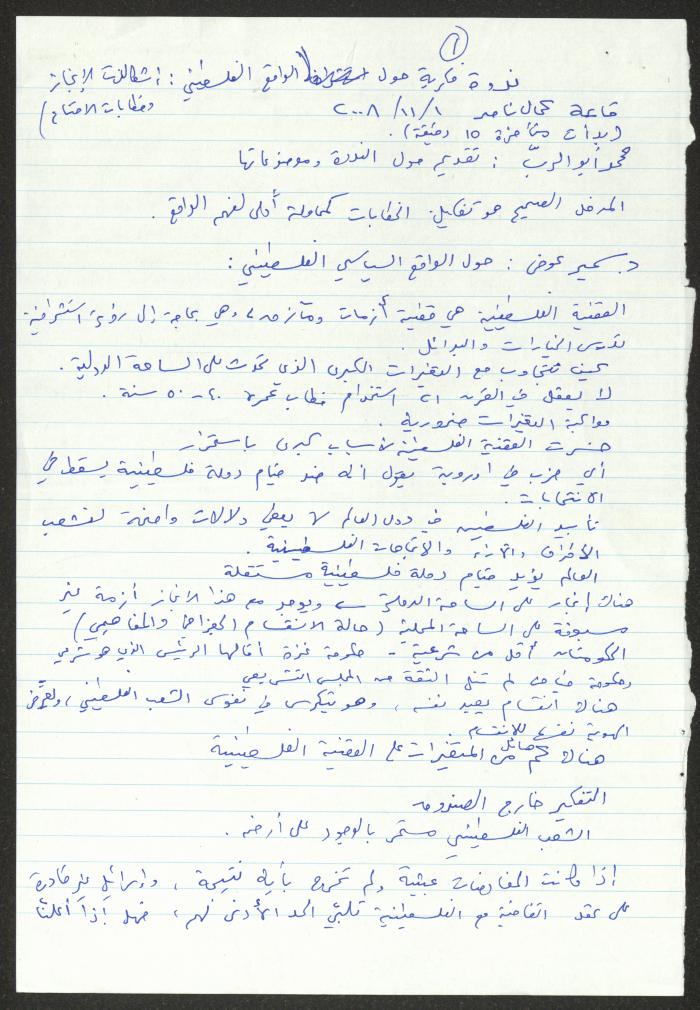 ١
ندوة فكرية حول الواقع الفلسطيني: إشكاليات الإنجاز
وخطابات الافتتاح)
قاعة كمال ناصر ٢٠٠٨/١١/١
(بدأت متأخرة 15 دقيقة).
محمد أبو الربّ: تقديم حول الندوة وموضوعاتها
المدخل الصحيح هو تفكيك الخطابات كمحاولة أولى لفهم الواقع.
د. سمير عوض: حول الواقع السياسي الفلسطيني:
القضية الفلسطينية هي قضية أزمات ومآزق، وهي بحاجة إلى رؤية استشرافية
تدرس الخيارات والبدائل.
كيف نتجاوب مع التغيرات الكبرى الذي تحدث على الساحة الدولية.
لا يعقل في القرن ٢١ استخدام خطاب عمره ٢٠-٥٠ سنة.
مواكبة التغيرات ضرورية.
خسرت القضية الفلسطينية لأسباب كبرى باستمرار
أي حزب في أوروبا يقول انه ضد قيام دولة فلسطينية يسقط في
الانتخابات.
تأييد الفلسطينيين في دول العالم لا يعطي دلالات واضحة لتشعب
الأطراف والآراء والاتجاهات الفلسطينية.
العالم يؤيد قيام دولة فلسطينية مستقلة
هناك إنجاز على الساحة الدولية ويوجد مع هذا الإنجاز أزمة غير
مسبوقة على الساحة المحلية (حالة الانقسام الجغرافي والمفاهيمي)
الحكومتان أقل من شرعية - حكومة غزة أقالها الرئيس الذي هو شرعي
وحكومة فياض لم تنل الثقة من المجلس التشريعي
هناك انقسام يعيد نفسه، وهو يتكرس في نفوس الشعب الفلسطيني، وتعرّض
الهوية نفسها للانقسام.
هناك كم هائل من المتغيرات على القضية الفلسطينية
التفكير خارج الصندوق
الشعب الفلسطيني مستمر بالوجود على أرضه.
إذا كانت المفاوضات عبثية ولم تخرج بأية نتيجة، وإسرائيل غير قادرة
على عقد اتفاقية مع الفلسطينية تلبّي الحد الأدنى لهم، فهل إذا أعلنّا